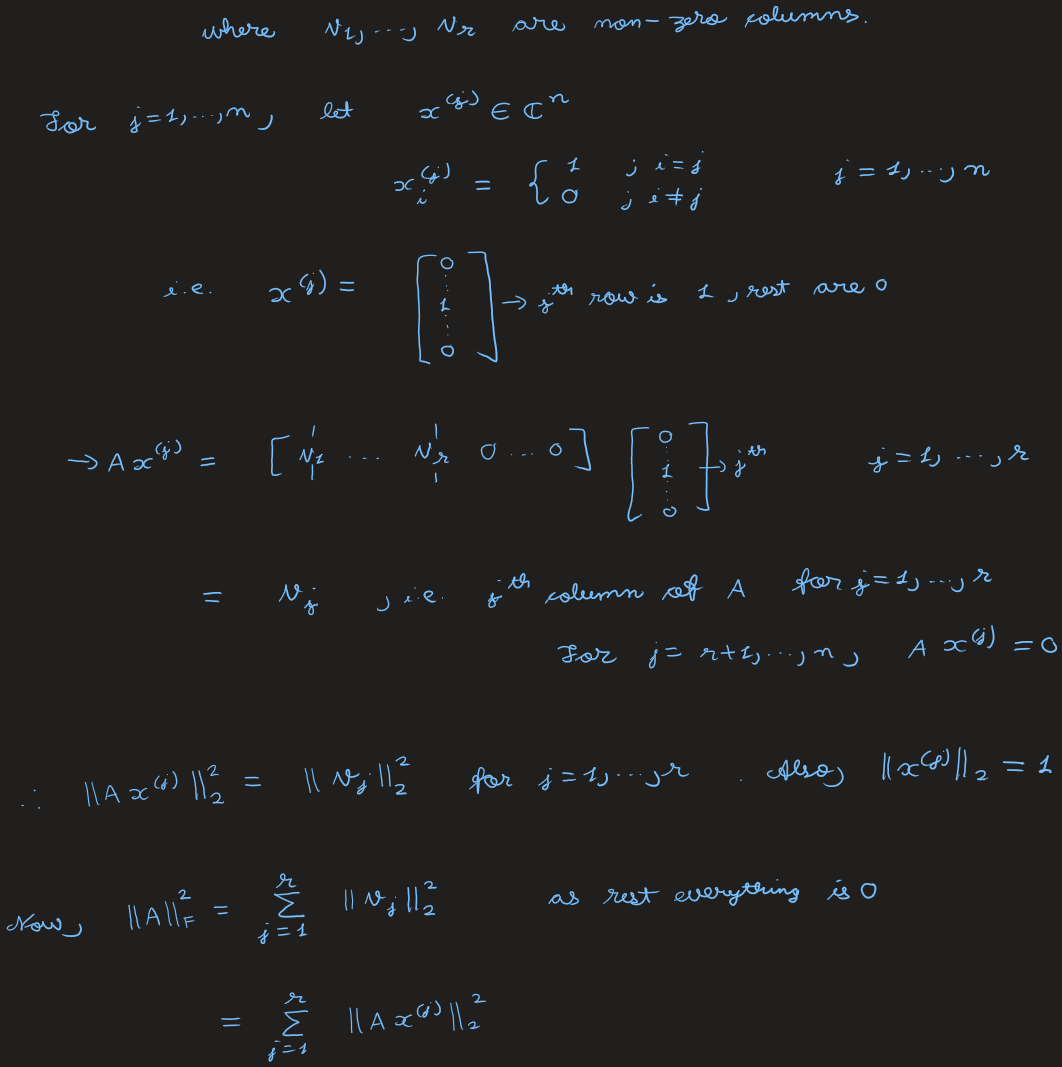 where v₁, ..., vᵣ are non-zero columns.
For j=1,...,n, let x⁽ʲ⁾ ∈ ℂⁿ
xᵢ⁽ʲ⁾ = { 1 ; i=j j=1,...,n
0 ; i≠j
i.e. x⁽ʲ⁾ = [0 ⋮ 1 ⋮ 0] → jᵗʰ row is 1, rest are 0
→ A x⁽ʲ⁾ = [v₁ ... vᵣ 0 ... 0] [0 ⋮ 1 ⋮ 0] → jᵗʰ j=1, ..., r
= vⱼ , i.e. jᵗʰ column of A for j=1,...,r
For j= r+1,...,n, A x⁽ʲ⁾ = 0
∴ ||A x⁽ʲ⁾||₂² = ||vⱼ||₂² for j=1,...,r . Also, ||x⁽ʲ⁾||₂ = 1
Now, ||A||_F² = ∑_{j=1}^{r} ||vⱼ||₂² as rest everything is 0
= ∑_{j=1}^{r} ||A x⁽ʲ⁾||₂²